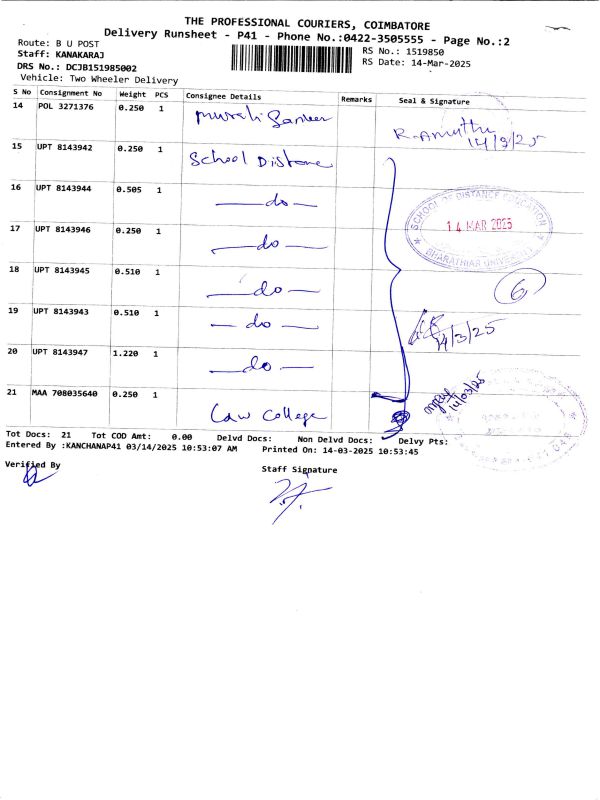 THE PROFESSIONAL COURIERS, COIMBATORE
Delivery Runsheet - P41 - Phone No.:0422-3505555 - Page No.:2
Route: B U POST
RS No.: 1519850
Staff: KANAKARAJ
RS Date: 14-Mar-2025
DRS No.: DCJB151985002
Vehicle: Two Wheeler Delivery
S No Consignment No Weight PCS Consignee Details Remarks Seal & Signature
14 POL 3271376 0.250 1 R. Amutha 14/3/25
15 UPT 8143942 0.250 1 School Distance
16 UPT 8143944 0.505 1 —do—
SCHOOL OF DISTANCE EDUCATION
14 MAR 2025
BHARATHIAR UNIVERSITY
17 UPT 8143946 0.250 1 —do—
18 UPT 8143945 0.510 1 —do— 6
19 UPT 8143943 0.510 1 —do— 14/3/25
20 UPT 8143947 1.220 1 —do—
21 MAA 708035640 0.250 1 Law College 14/03/25
Tot Docs: 21 Tot COD Amt: 0.00 Delvd Docs: Non Delvd Docs: Delvy Pts:
Entered By :KANCHANAP41 03/14/2025 10:53:07 AM Printed On: 14-03-2025 10:53:45
Verified By
Staff Signature